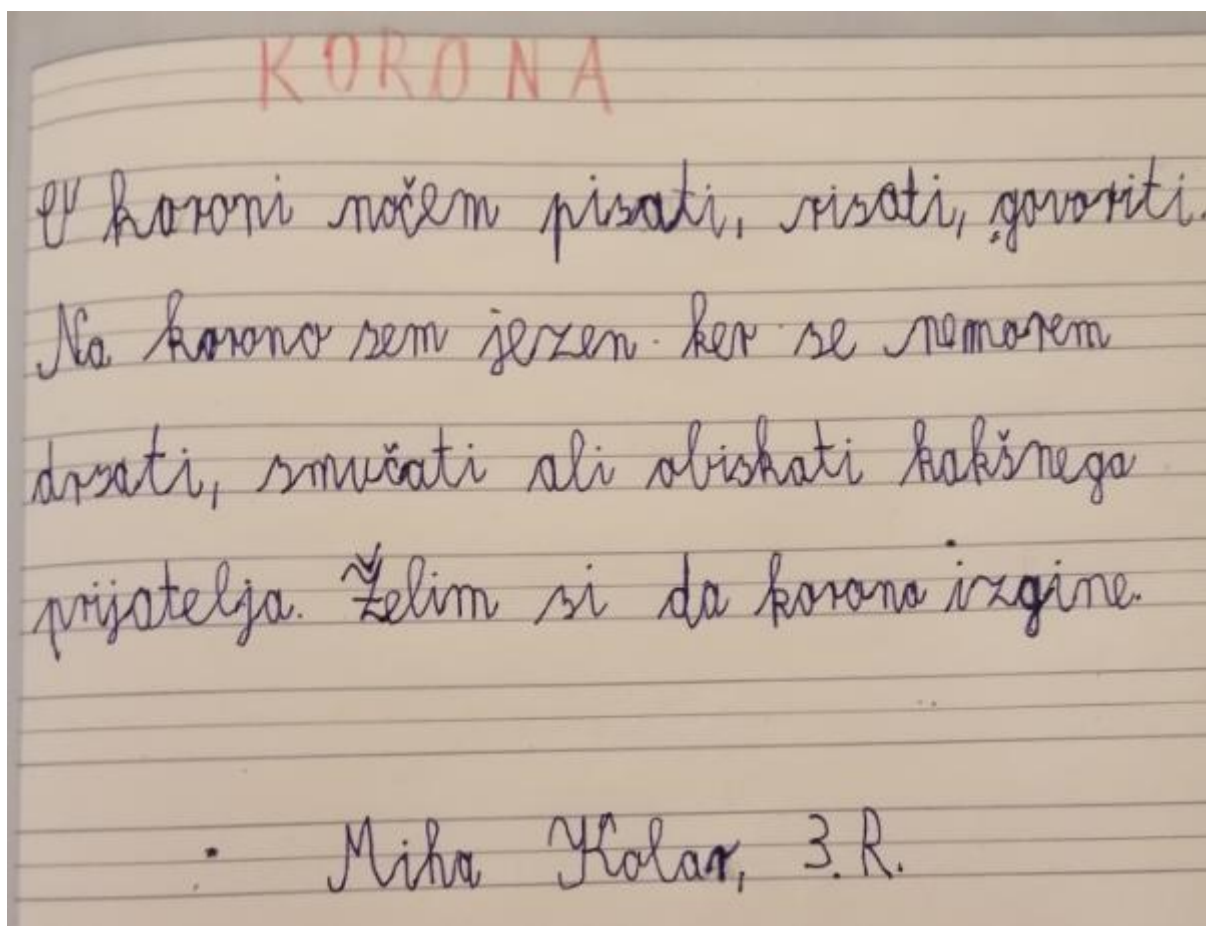 KORONA
V koroni nočem pisati, risati, govoriti.
Na korono sem jezen ker se nemorem
drsati, smučati ali obiskati kakšnega
prijatelja. Želim si da korona izgine.
Miha Kolar, 3. R.